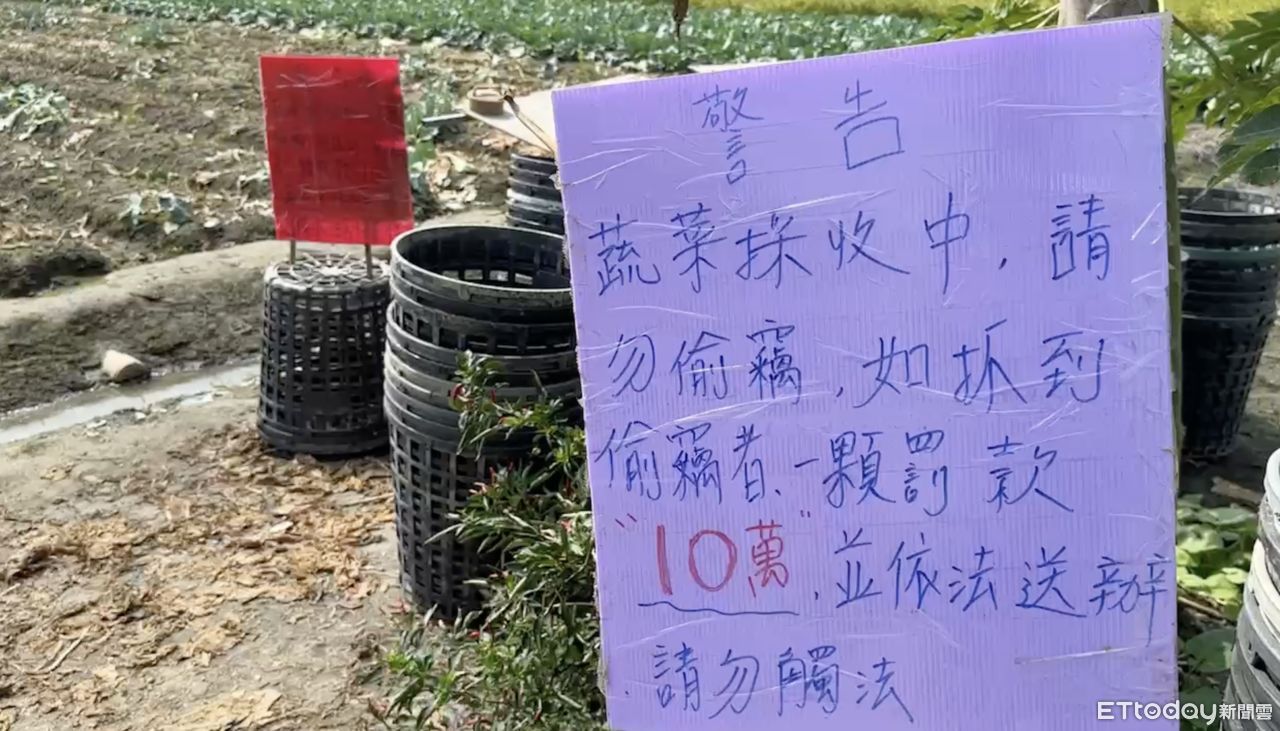 警告
蔬菜採收中，請
勿偷竊，如抓到
偷竊者、一顆罰款
"10萬"，並依法送辦
請勿觸法
ETtoday新聞雲